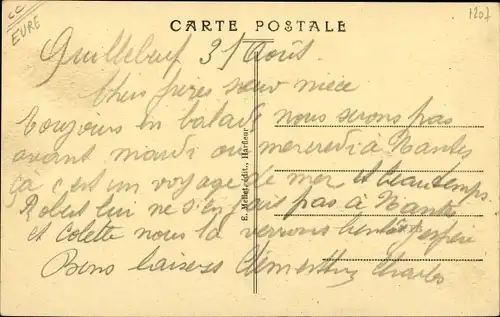 CC
EURE
1207
CARTE POSTALE
Quillebeuf 31 Août.
Chers frères sœur nièce
Toujours en balade nous serons pas
avant mardi ou mercredi à Nantes
ça c'est un voyage de mer et beau temps.
Robert lui ne s'en fait pas à Nantes
et Colette nous la verrons bientôt j'espère
Bons baisers Clémentine Charles
E. édit., Harfleur